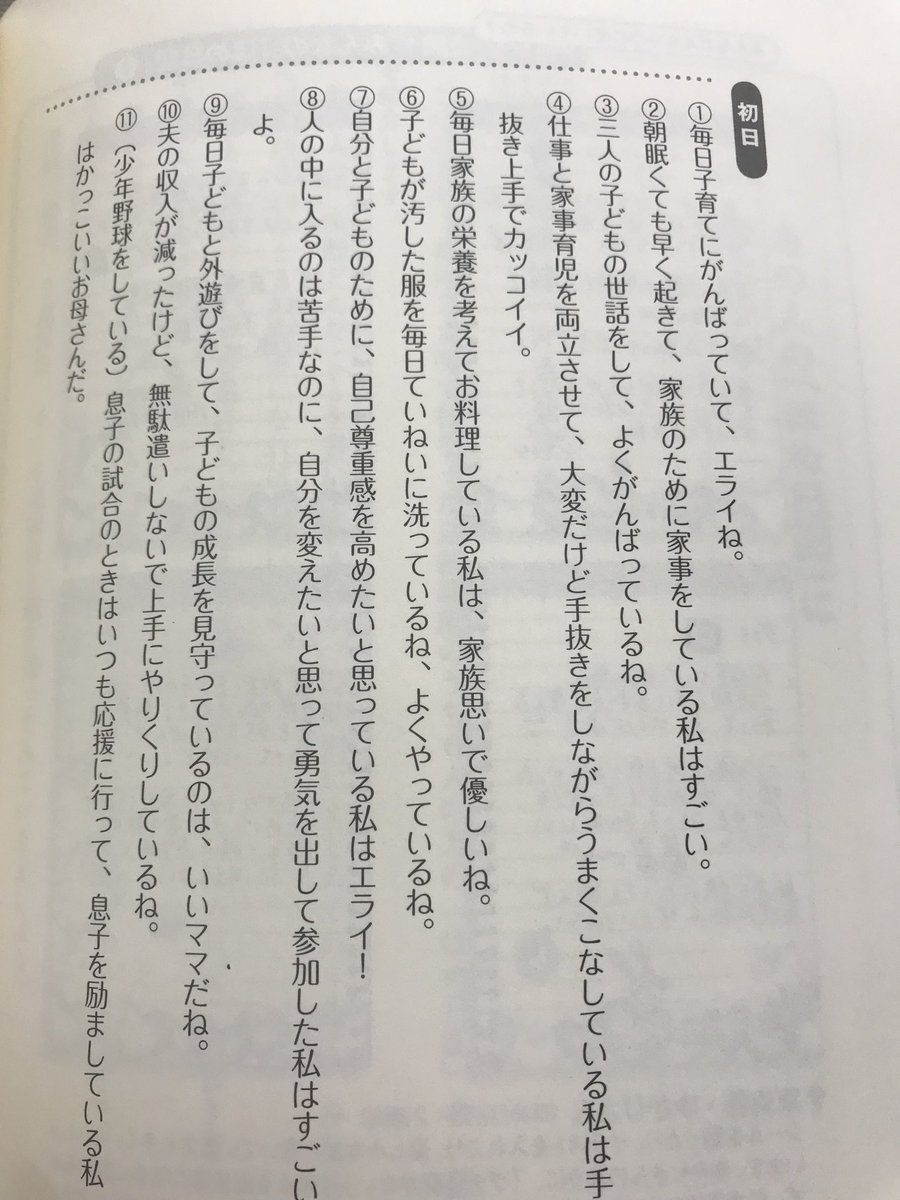 初日
①毎日子育てにがんばっていて、エライね。
②朝眠くても早く起きて、家族のために家事をしている私はすごい。
③三人の子どもの世話をして、よくがんばっているね。
④仕事と家事育児を両立させて、大変だけど手抜きをしながらうまくこなしている私は手
抜き上手でカッコイイ。
⑤毎日家族の栄養を考えてお料理している私は、家族思いで優しいね。
⑥子どもが汚した服を毎日ていねいに洗っているね、よくやっているね。
⑦自分と子どものために、自己尊重感を高めたいと思っている私はエライ！
⑧人の中に入るのは苦手なのに、自分を変えたいと思って勇気を出して参加した私はすごい
よ。
⑨毎日子どもと外遊びをして、子どもの成長を見守っているのは、いいママだね。
⑩夫の収入が減ったけど、無駄遣いしないで上手にやりくりしているね。
⑪（少年野球をしている）息子の試合のときはいつも応援に行って、息子を励ましている私
はかっこいいお母さんだ。